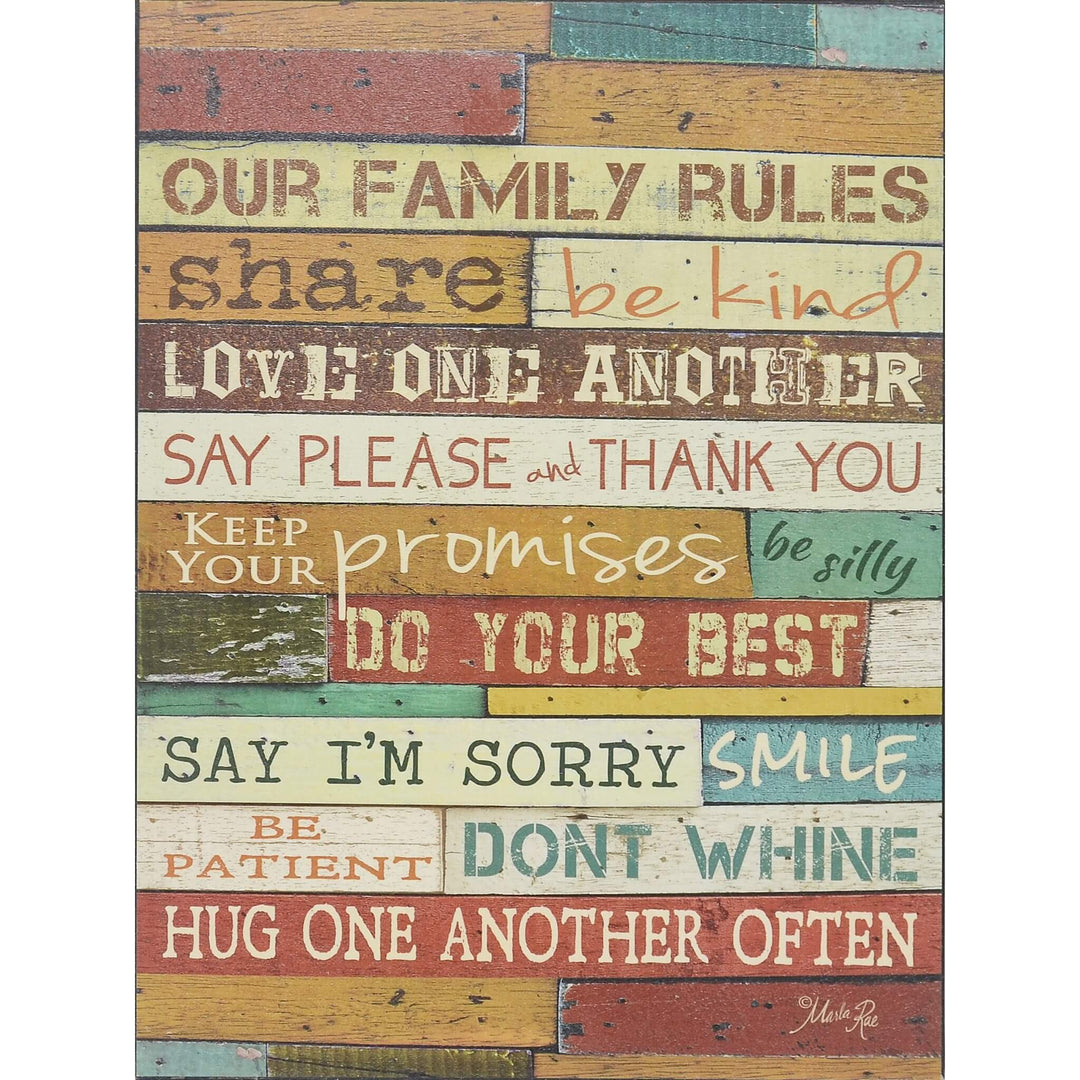 OUR FAMILY RULES
share be kind
LOVE ONE ANOTHER
SAY PLEASE and THANK YOU
KEEP YOUR promises be silly
DO YOUR BEST
SAY I'M SORRY SMILE
BE PATIENT DONT WHINE
HUG ONE ANOTHER OFTEN
©Marla Rae